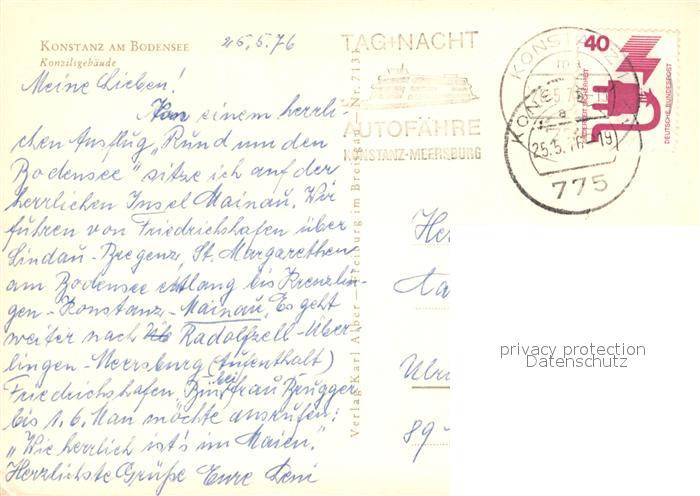 KONSTANZ AM BODENSEE
Konzilsgebäude
25.5.76
Meine Lieben!
Von einem herrli-
chen Ausflug „Rund um den
Bodensee" sitze ich auf der
herrlichen Insel Mainau. Wir
fuhren von Friedrichshafen über
Lindau - Bregenz, St. Margarethen
am Bodensee entlang bis Kreuzlin-
gen - Konstanz - Mainau. Es geht
weiter nach Radolfzell - Über-
lingen - Meersburg (Aufenthalt)
Friedrichshafen. Bin bei Frau Brugger
bis 1.6. Man möchte ausrufen:
„Wie herrlich ist's im Maien."
Herzlichste Grüße Eure
Verlag Karl Alber - Freiburg im Breisgau - Nr. 713
TAG+NACHT
AUTOFÄHRE
KONSTANZ-MEERSBURG
KONSTANZ
25.5.76-19
775
40
DEUTSCHE BUNDESPOST
89-
privacy protection
Datenschutz